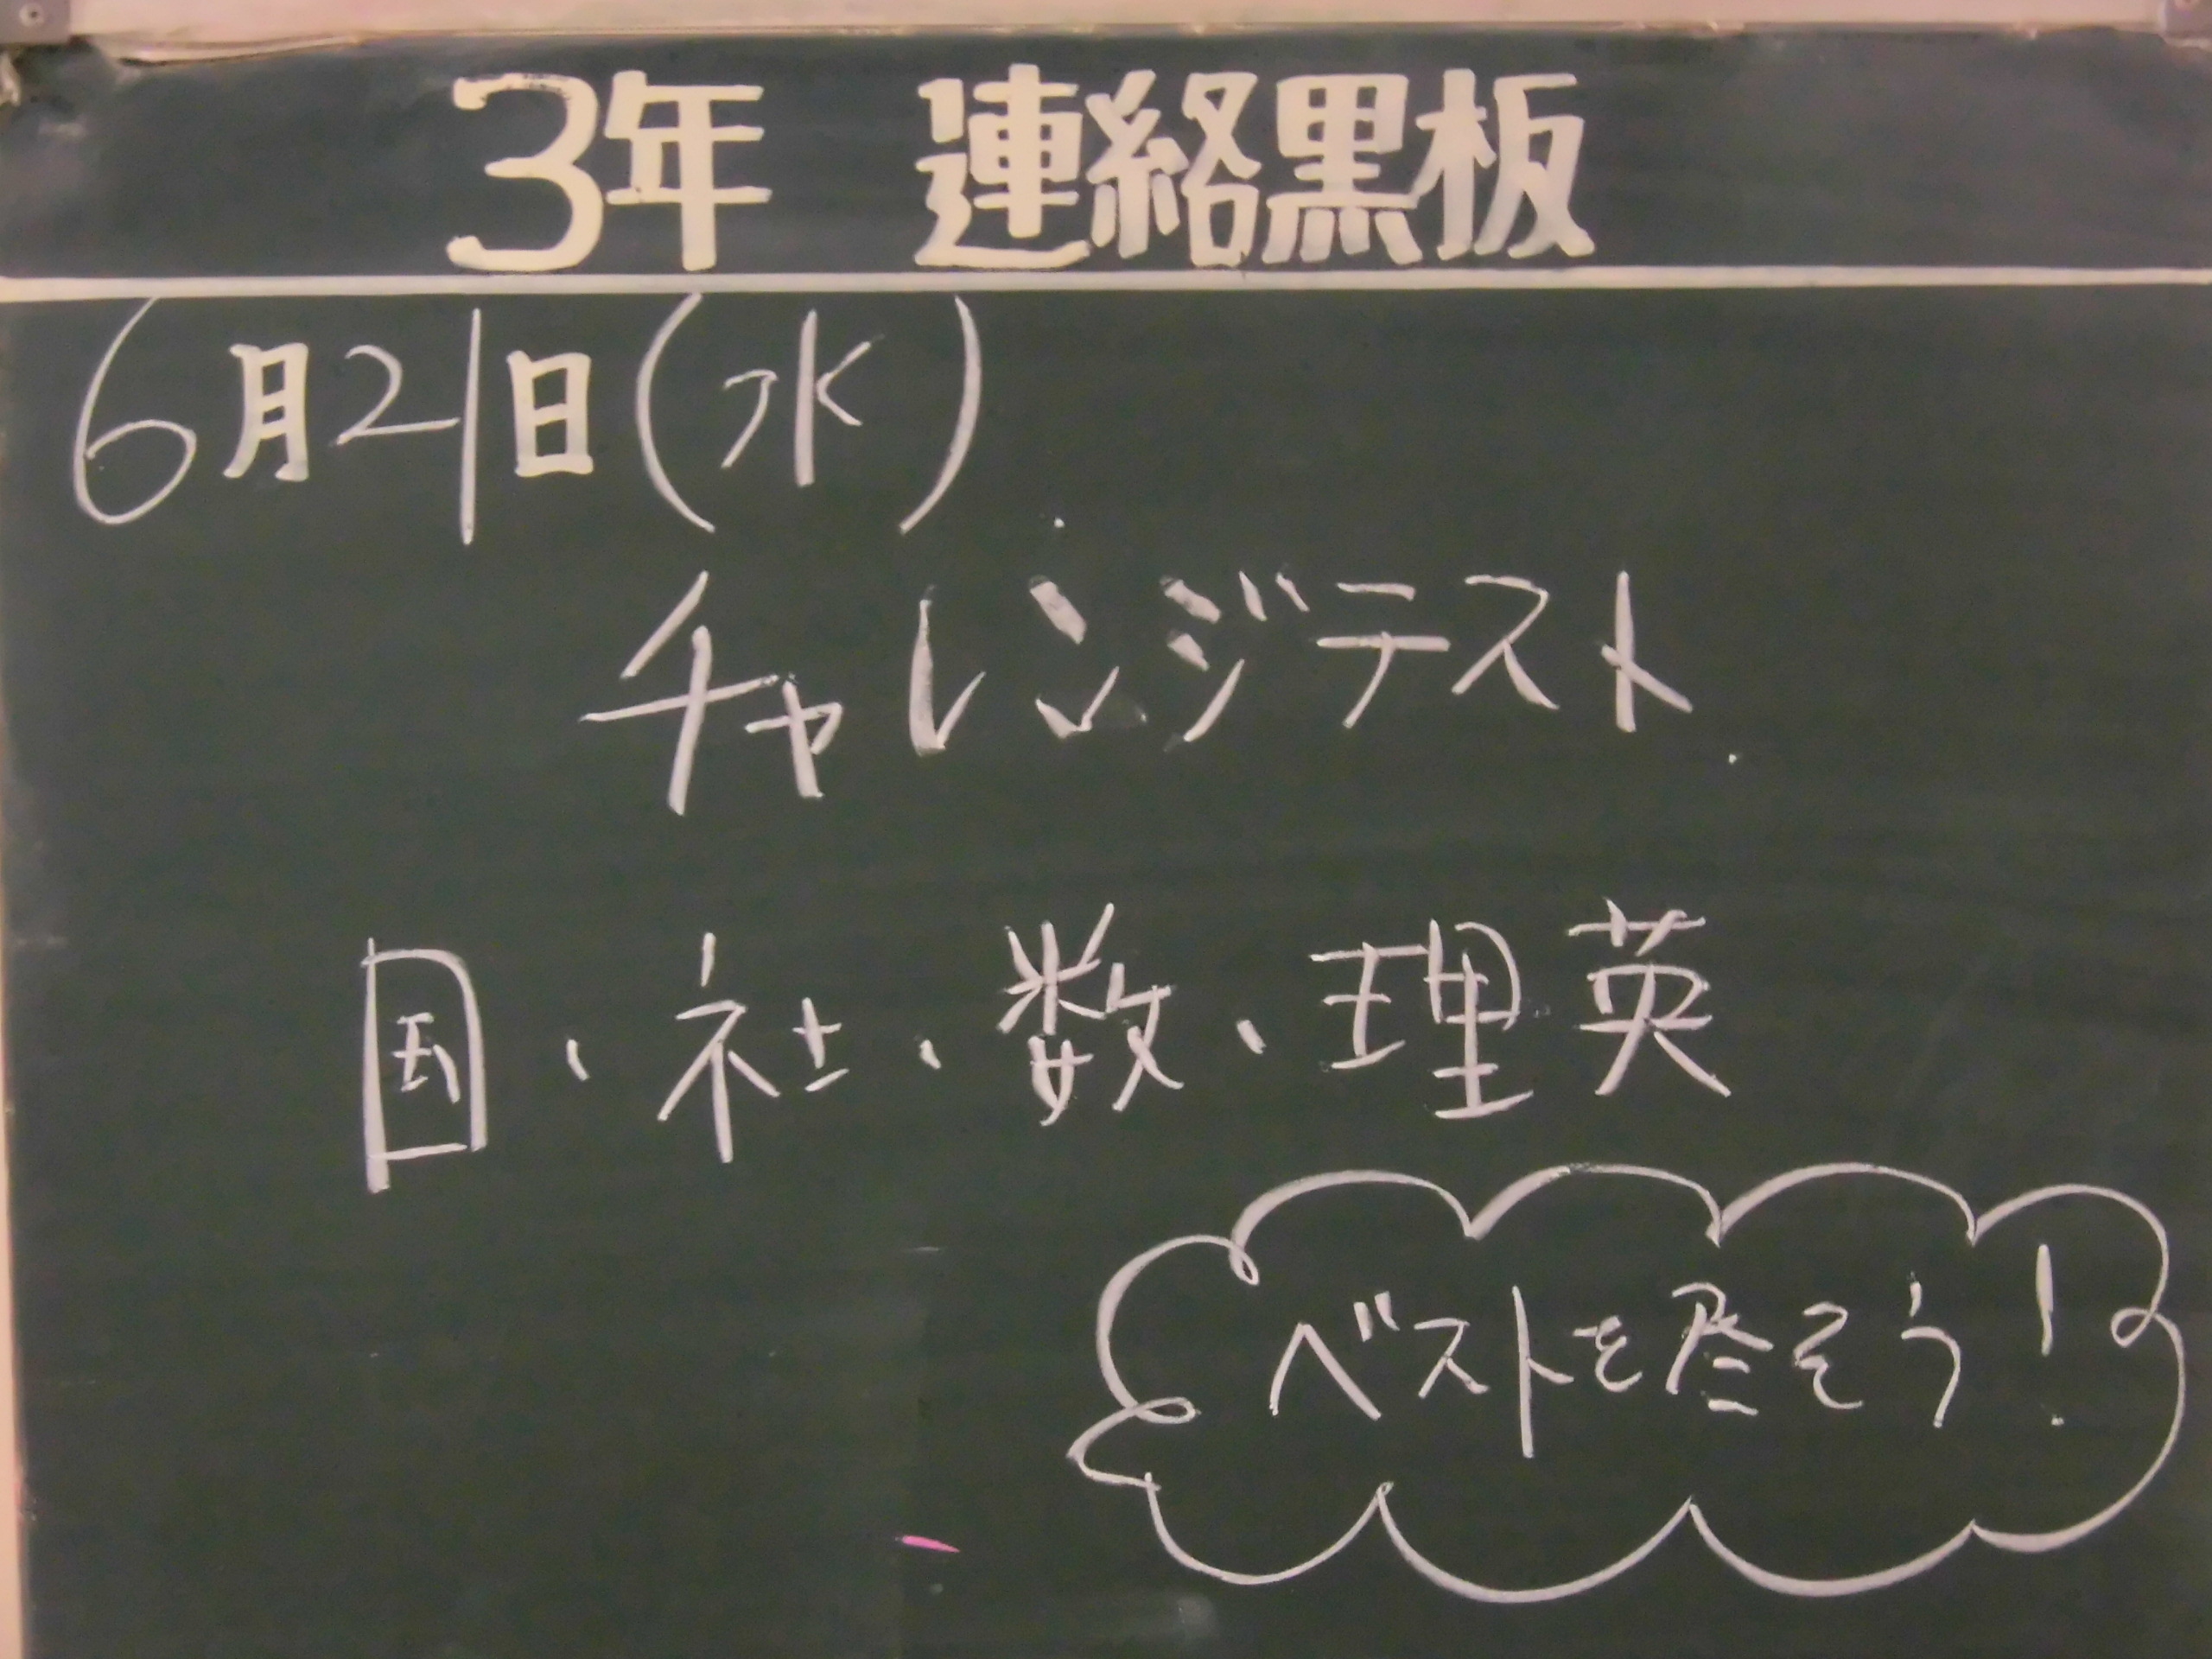 3年 連絡黒板
6月21日(水)
チャレンジテスト
国・社・数・理英
ベストを尽そう!